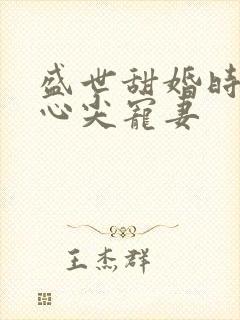 盛世甜婚时
心尖宠妻
王杰群